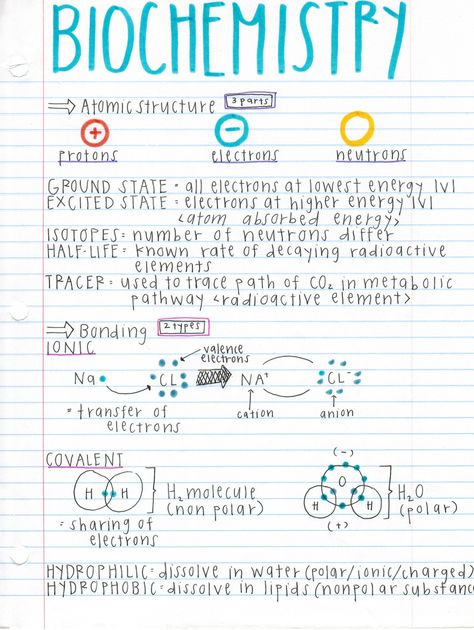 BIOCHEMISTRY
⇒ Atomic structure 3 parts
+ −
protons electrons neutrons
GROUND STATE = all electrons at lowest energy lvl
EXCITED STATE = electrons at higher energy lvl
<atom absorbed energy>
ISOTOPES = number of neutrons differ
HALF-LIFE = known rate of decaying radioactive
elements
TRACER = used to trace path of CO₂ in metabolic
pathway <radioactive element>
⇒ Bonding 2 types
IONIC
valence
electrons
Na CL NA⁺ CL⁻
= transfer of
electrons
cation anion
COVALENT
(-)
H H H₂ molecule
(non polar)
O H₂O
(polar)
H H
(+)
= sharing of
electrons
HYDROPHILIC = dissolve in water (polar/ionic/charged)
HYDROPHOBIC = dissolve in lipids (nonpolar substanc